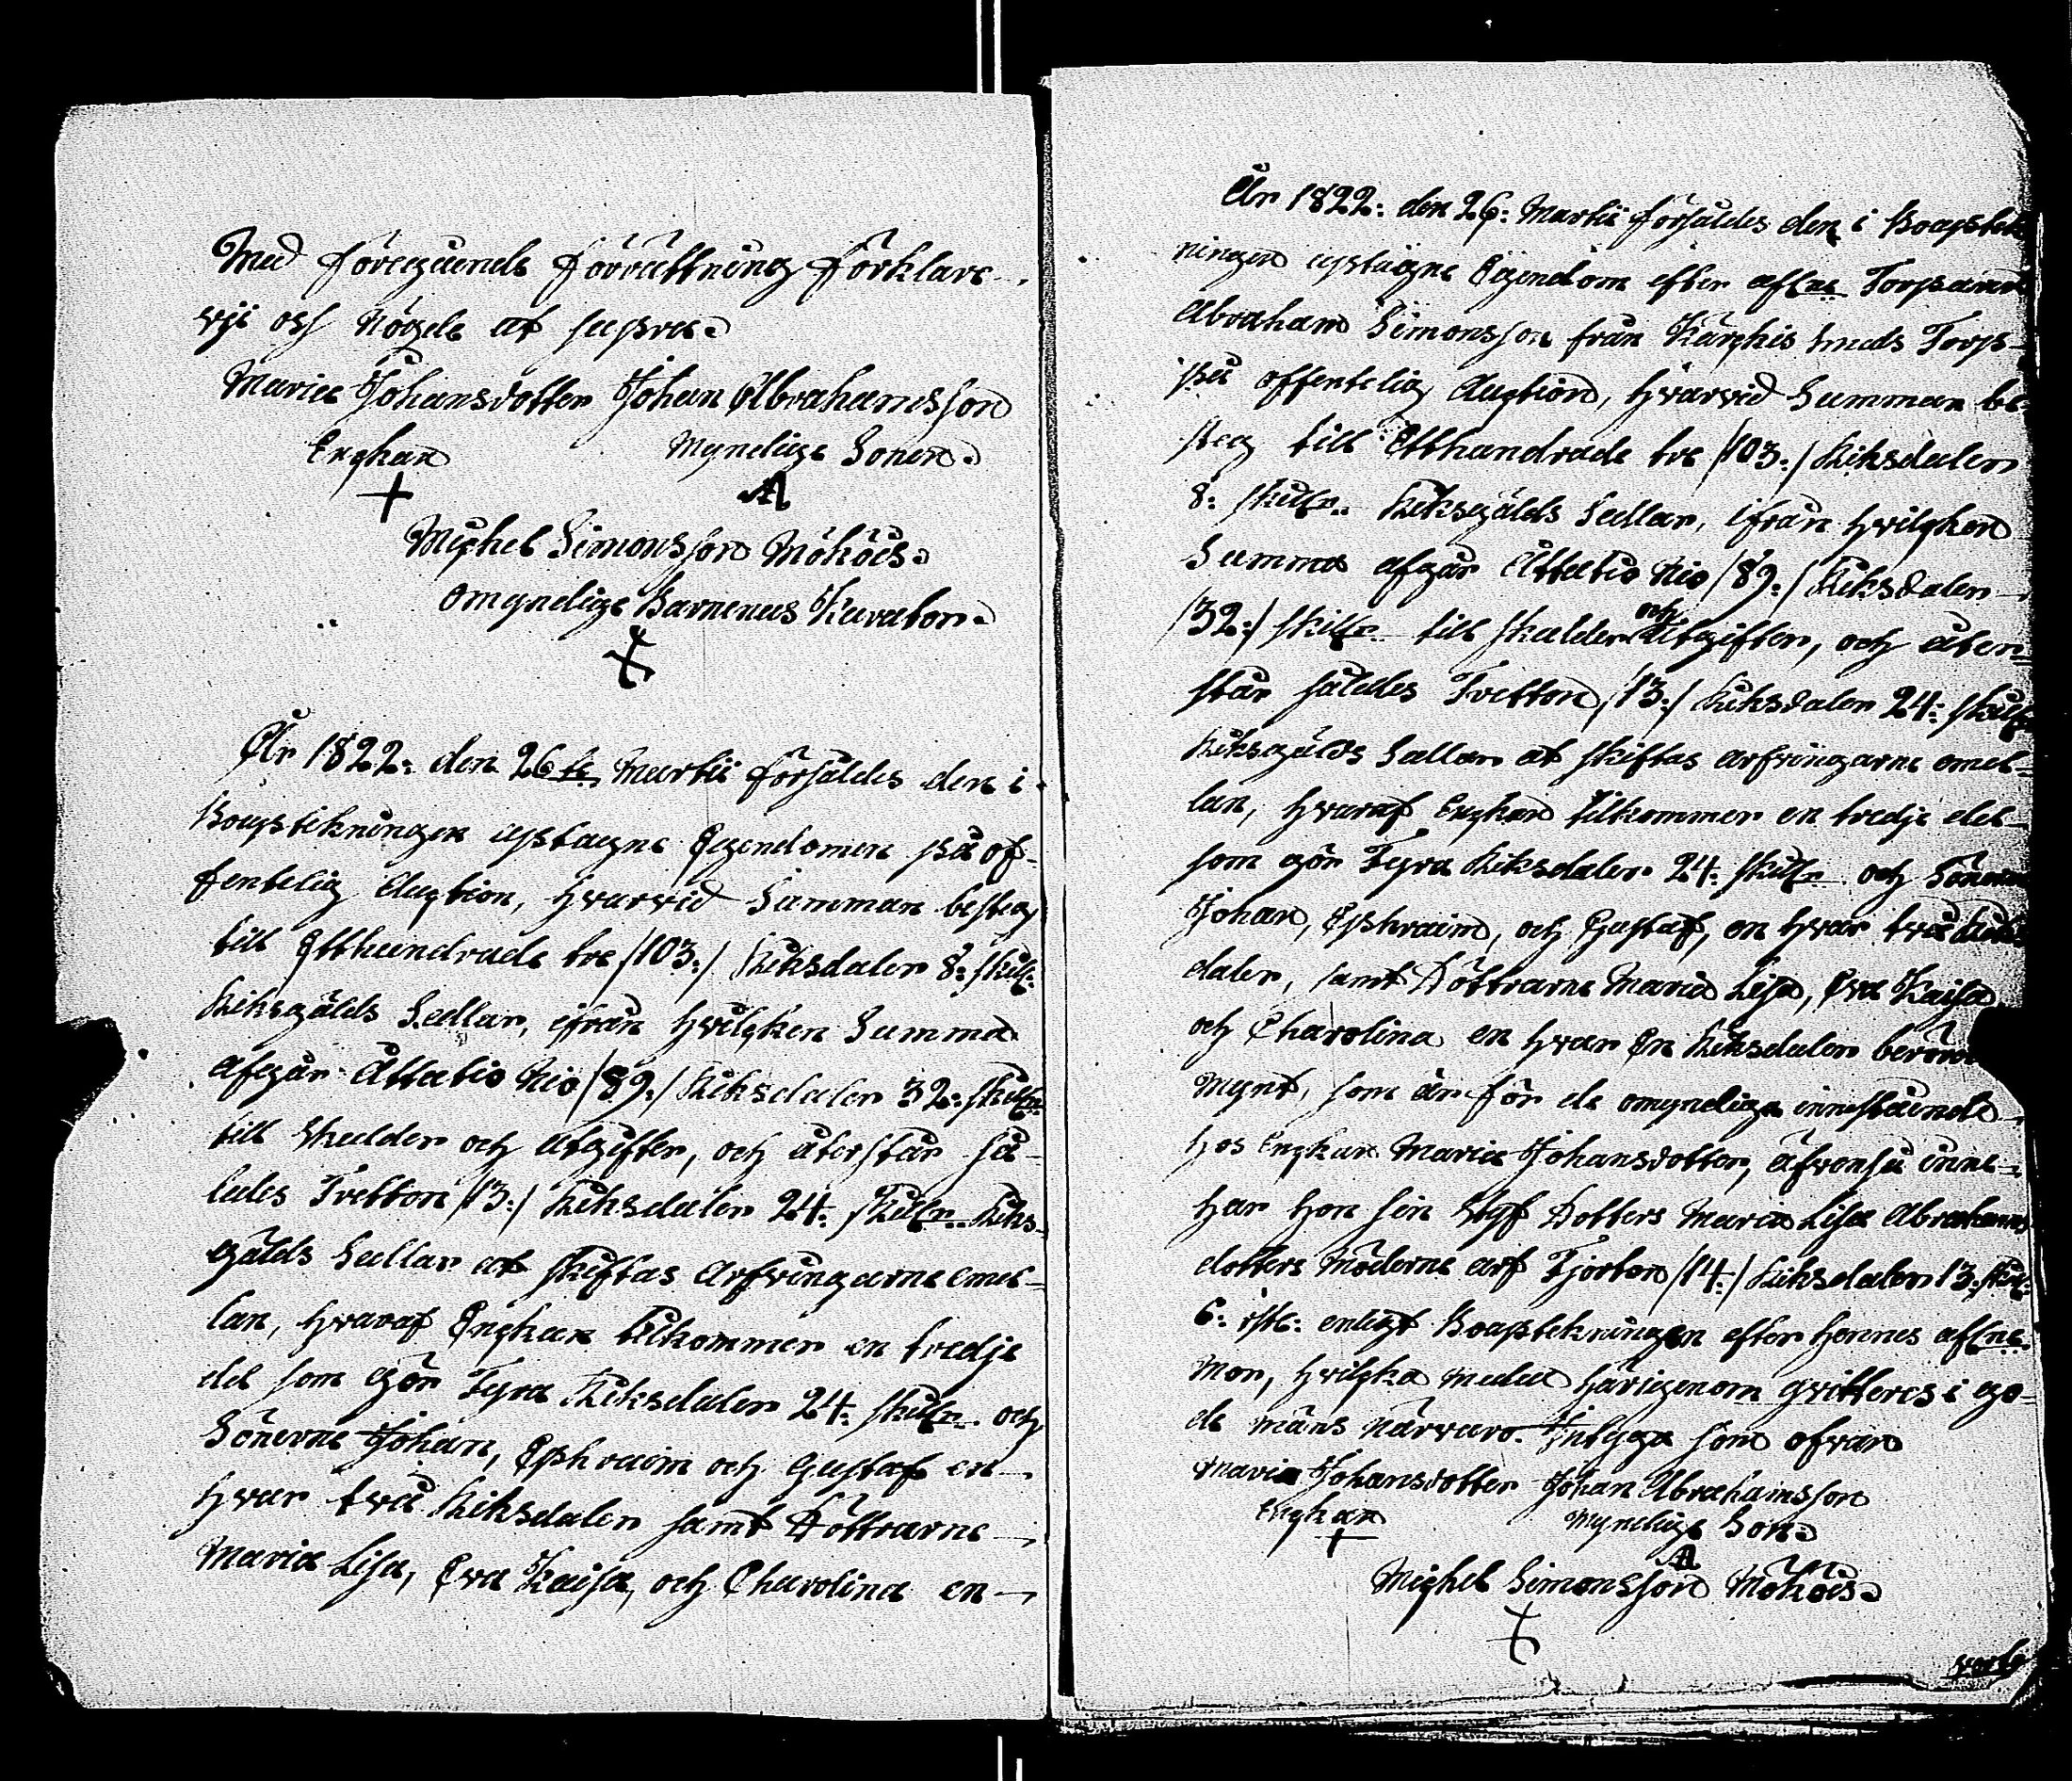 Med föregående förrättning förklara
vji oss nögde at supra
Maria Johansdotter Johan Abrahamsson
Enghan Myndige Sonen
+ A
Michel Simonsson Möhöis
Omyndige Barnenas Kurator
X
År 1822: den 26te Martii försåldes den i
Bouptekningen uptagne Egendomen på of-
fentelig Auction, hvarvid Summan besteg
till Etthundrade tre /103:/ Riksdaler 8: skill:
Riksgälds Sedlar, ifrån hvilcken Summa
afgår Åttatio Nio /89:/ Riksdaler 32: skill:
till skulder och Utgifter, och återstår så-
ledes Tretton /13:/ Riksdaler 24: skill: Riks-
gälds Sedlar at skiftas Arfvingarne emel-
lan, hvaraf Enghan tilkommer en tredje
del som gör Fyra Riksdaler 24: skill: och
Sönerne Johan, Ephraim och Gustaf en
hvar två Riksdaler samt Döttrarne
Maria Lisa, Eva Kaisa, och Charolina en
År 1822: den 26: Martii försåldes den i Bouptek
ningen uptagne Egendom efter aflne Torparen
Abraham Simonsson från Torps-
på offentelig Auction, hvarvid Summan be-
steg till Etthundrade tre /103:/ Riksdaler
8: skill: Riksgälds Sedlar, ifrån hvilcken
Summa afgår Åttatio Nio /89:/ Riksdaler
/32:/ skill: till skulder och Utgifter, och åter-
står således Tretton /13:/ Riksdaler 24: skill:
Riksgälds Sedlar at skiftas arfvingarne emel-
lan, hvaraf Enghan tilkommer en tredje del
som gör Fyra Riksdaler 24: skill: och Sönerne
Johan, Ephraim, och Gustaf, en hvar två Riks
daler, samt Döttrarne Maria Lisa, Eva Kaisa
och Charolina en hvar En Riksdaler berörde
Mynt, som är för de omyndiga innestående
hos Enghan Maria Johansdotter, äfvenså inne-
har hon sin Styf Dotters Maria Lisa Abrahams
dotters Möderne arf Fjorton /14:/ Riksdaler 13: skill:
6: rst: enligt Bouptekningen efter hennes aflne
Mor, hvilcka medel härigenom qvitteres i go-
de mäns närvaro. som ofvan
Maria Johansdotter Johan Abrahamsson
Enghan Myndige Son
+ A
Michel Simonsson Möhöis
X